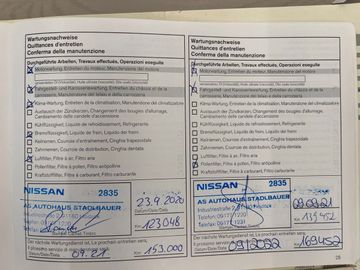 Wartungsnachweise
Quittances d'entretien
Conferma della manutenzione
Durchgeführte Arbeiten, Travaux effectués, Operazioni eseguite
Motorwartung, Entretien du moteur, Manutenzione del motore
Fahrgestell- und Karosseriewartung, Entretien du châssis et de la
carrosserie, Manutenzione del telaio e della carrozzeria
Klima-Wartung, Entretien de la climatisation, Manutenzione del climatizzatore
Austausch der Zündkerzen, Changement des bougies d'allumage,
Cambiamento delle candele d'accensione
Kühlflüssigkeit, Liquide de refroidissement, Refrigerante
Bremsflüssigkeit, Liquide de frein, Liquido dei freni
Keilriemen, Courroie d'entraînement, Cinghia trapezoidale
Zahnriemen, Courroie de distribution, Cinghia dentata
Luftfilter, Filtre à air, Filtro aria
Pollenfilter, Filtre à pollen, Filtro antipolline
Kraftstofffilter, Filtre à carburant, Filtro carburante
NISSAN 2835
AS AUTOHAUS STADLBAUER
23.9.2020
Km 123048
Der nächste Wartungsdienst ist, Le prochain entretien sera,
09.21
Km 153.000
Wartungsnachweise
Quittances d'entretien
Conferma della manutenzione
Durchgeführte Arbeiten, Travaux effectués, Operazioni eseguite
Motorwartung, Entretien du moteur, Manutenzione del motore
Fahrgestell- und Karosseriewartung, Entretien du châssis et de la
carrosserie, Manutenzione del telaio e della carrozzeria
Klima-Wartung, Entretien de la climatisation, Manutenzione del climatizzatore
Austausch der Zündkerzen, Changement des bougies d'allumage,
Cambiamento delle candele d'accensione
Kühlflüssigkeit, Liquide de refroidissement, Refrigerante
Bremsflüssigkeit, Liquide de frein, Liquido dei freni
Keilriemen, Courroie d'entraînement, Cinghia trapezoidale
Zahnriemen, Courroie de distribution, Cinghia dentata
Luftfilter, Filtre à air, Filtro aria
Pollenfilter, Filtre à pollen, Filtro antipolline
Kraftstofffilter, Filtre à carburant, Filtro carburante
NISSAN 2835
AS AUTOHAUS STADLBAUER
Km 139452
Der nächste Wartungsdienst ist, Le prochain entretien sera,
09/2022
Km 169452
25